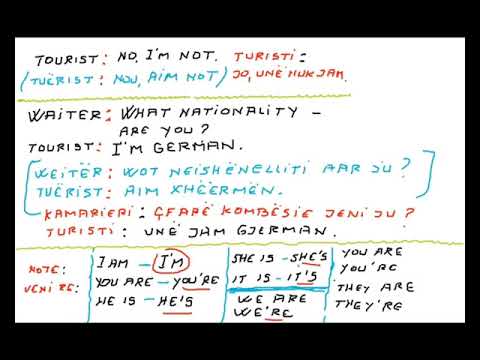 TOURIST: NO, I'M NOT. TURISTI:
(TUËRIST: NOU, AIM NOT) JO, UNË NUK JAM.
WAITER: WHAT NATIONALITY –
ARE YOU?
TOURIST: I'M GERMAN.
WEITËR: WOT NEISHËNELLITI AAR JU?
TUËRIST: AIM XHËËRMËN.
KAMARIERI: ÇFARË KOMBËSIE JENI JU?
TURISTI: UNË JAM GJERMAN.
NOTE:
VENI RE:
I AM – I'M
YOU ARE – YOU'RE
HE IS – HE'S
SHE IS – SHE'S
IT IS – IT'S
WE ARE
WE'RE
YOU ARE
YOU'RE
THEY ARE
THEY'RE